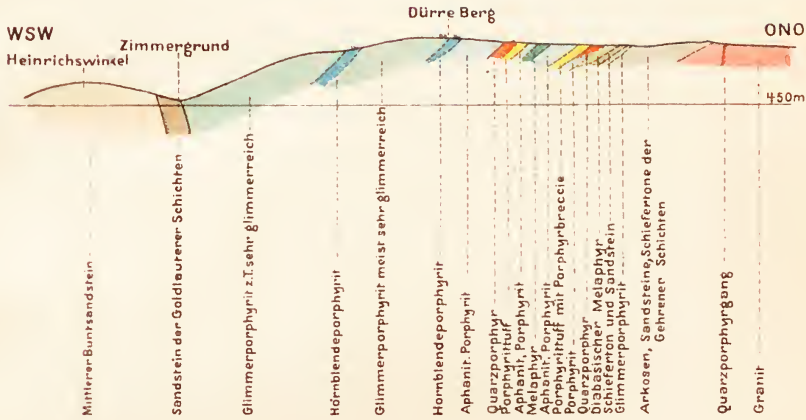 Dürre Berg
WSW
ONO
Zimmergrund
Heinrichswinkel
450m
Mittlerer Buntsandstein
Sandstein der Goldlauterer Schichten
Glimmerporphyrit z.T. sehr glimmerreich
Hornblendeporphyrit
Glimmerporphyrit meist sehr glimmerreich
Hornblendeporphyrit
Aphanit. Porphyrit
Quarzporphyr
Porphyrittuff
Aphanit. Porphyrit
Melaphyr
Aphanit. Porphyrit
Porphyrittuff mit Porphyrbreccie
Porphyrit
Quarzporphyr
Diabasischer Melaphyr
Schieferton und Sandstein
Glimmerporphyrit
Arkosen, Sandsteine, Schiefertone der
Gehrener Schichten
Quarzporphyrgang
Granit